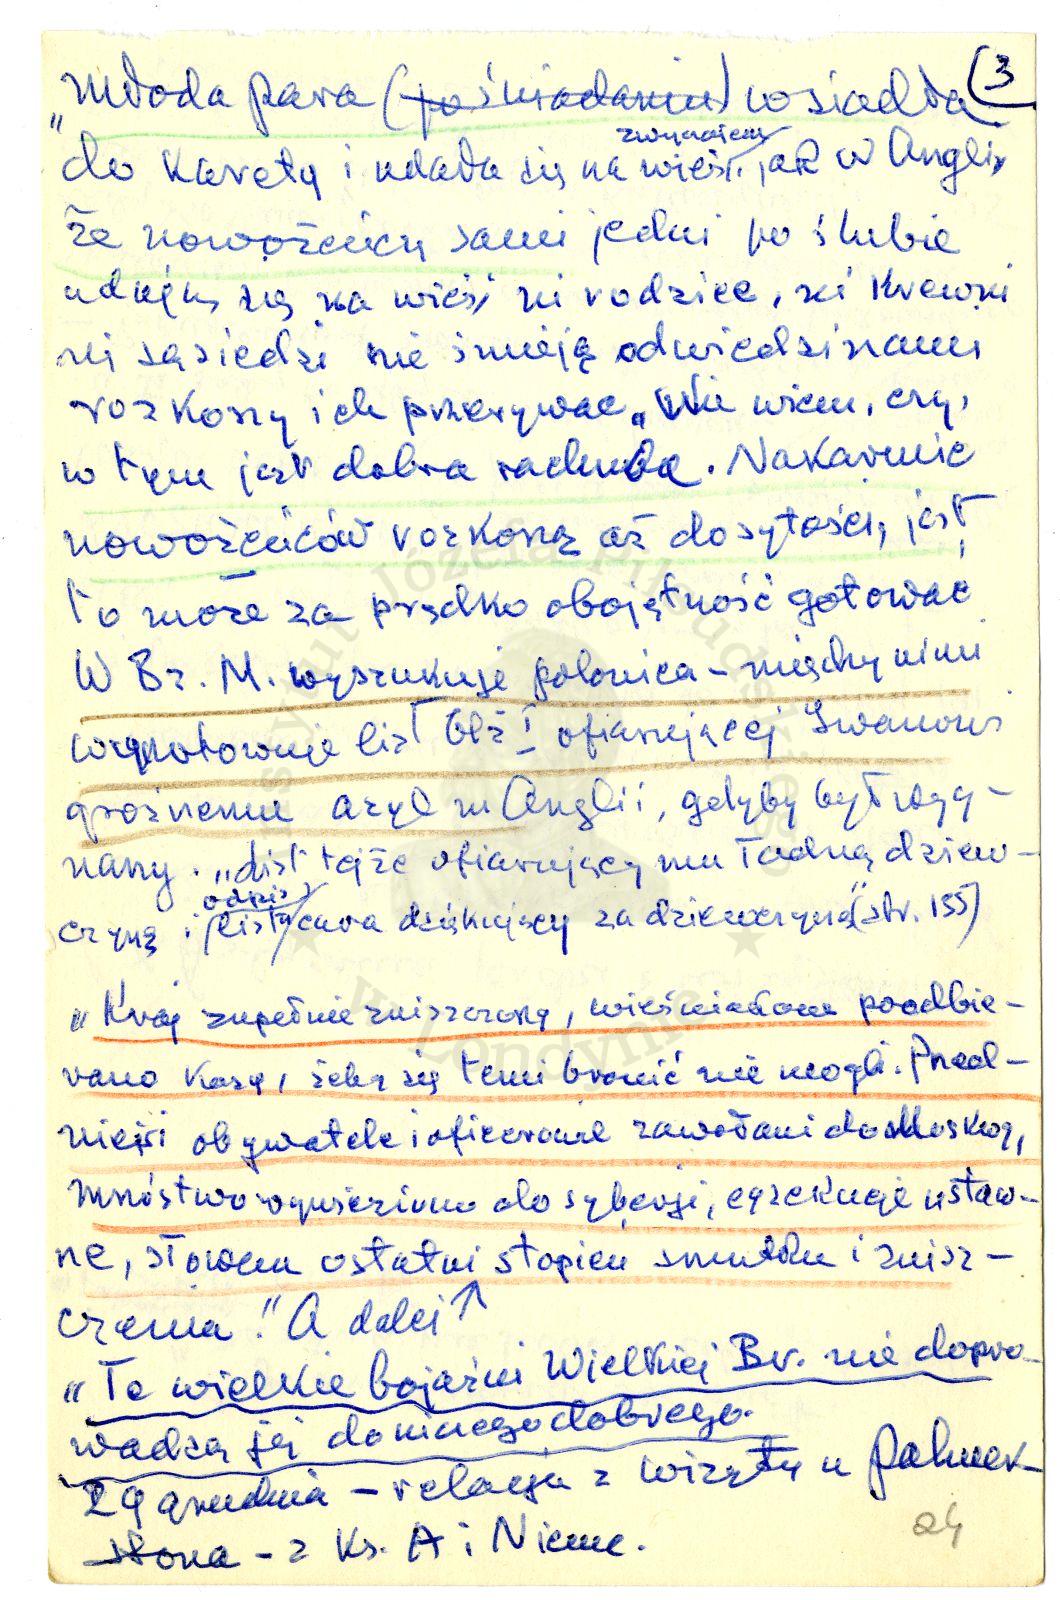 (3
„Młoda para (po śniadaniu) wsiadła
do karety i udała się na wieś, jak w Anglii
zwyczajem
że nowożeńcy sami jedni po ślubie
udają się na wieś, ni rodzice, ni krewni
ni sąsiedzi nie śmieją odwiedzinami
rozkoszy ich przerywać. Nie wiem, czy,
w tym jest dobra rachuba. Nakarmić
nowożeńców rozkoszą aż do sytości, jest
to może za prędko obojętność gotować
W Br. M. wyszukuje polonica – między nimi
wynotowuje list Elż I ofiarującej Iwanowi
groźnemu azyl w Anglii, gdyby był wyg-
nany. „List tejże ofiarujący mu ładną dziew-
odpis
czynę i listy cara dziękujący za dziewczynę" (str. 155)
„Kraj zupełnie zniszczony, wieśniakom poodbie-
rano kosy, żeby się temi bronić nie mogli. Pred-
niejsi obywatele i oficerowie zawołani do Moskwy,
mnóstwo wywieziono do syberji, egzekucje ustaw-
ne, słowem ostatni stopień smutku i znisz-
czenia." A dalej ↑
„Te wielkie bojaźni Wielkiej Br. nie dopro-
wadzą jej do niczego dobrego.
29 grudnia – relacja z wizyty u Palmer-
stona – z Ks. A i Niemc.
24
Instytut Józefa Piłsudskiego
w Londynie